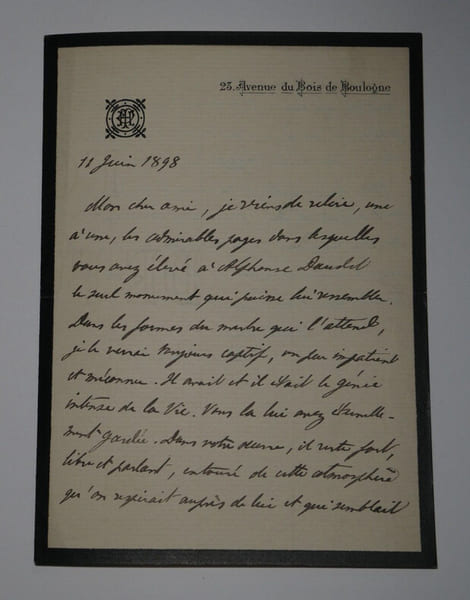 23. Avenue du Bois de Boulogne
11 Juin 1898
Mon cher ami, je viens de relire, une
à une, les admirables pages dans lesquelles
vous avez élevé à Alphonse Daudet
le seul monument qui puisse lui ressembler.
Dans les formes du marbre qui l'attend,
je le verrai toujours captif, un peu impatient
et méconnu. Il avait et il était le génie
intense de la Vie. Vous la lui avez éternelle-
ment gardée. Dans votre œuvre, il reste fort,
libre et parlant, entouré de cette atmosphère
qu'on respirait auprès de lui et qui semblait